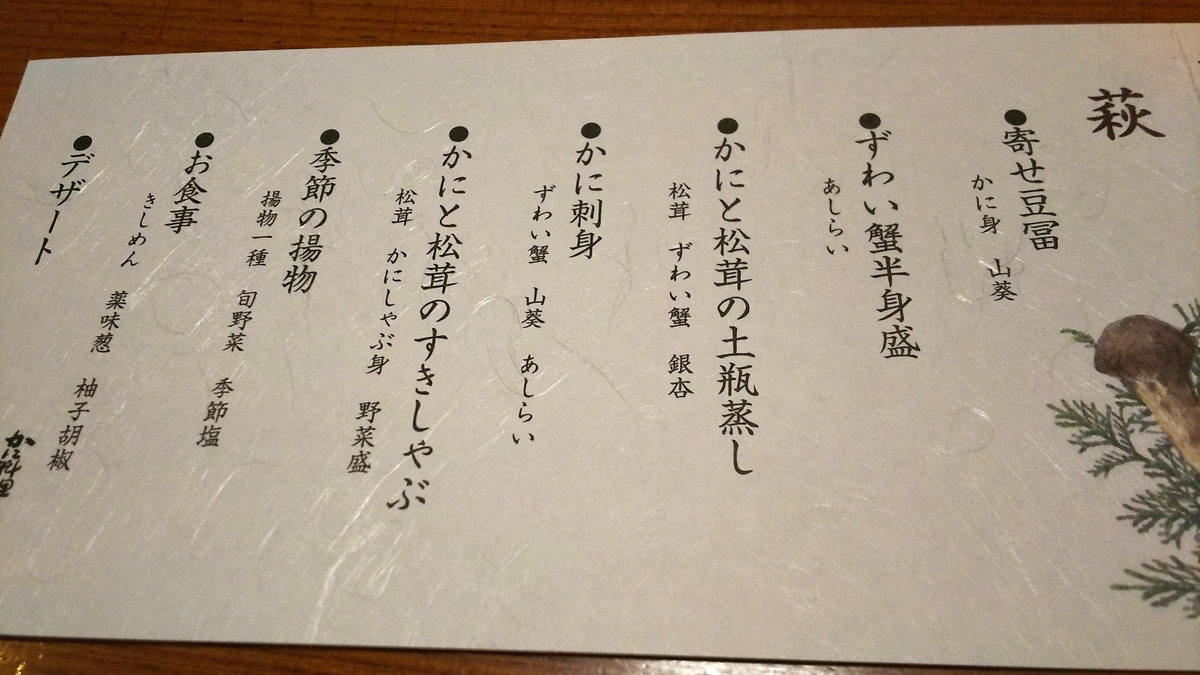 萩
●寄せ豆冨
かに身 山葵
●ずわい蟹半身盛
あしらい
●かにと松茸の土瓶蒸し
松茸 ずわい蟹 銀杏
●かに刺身
ずわい蟹 山葵 あしらい
●かにと松茸のすきしゃぶ
松茸 かにしゃぶ身 野菜盛
●季節の揚物
揚物一種 旬野菜 季節塩
●お食事
きしめん 薬味葱 柚子胡椒
●デザート
かに料理